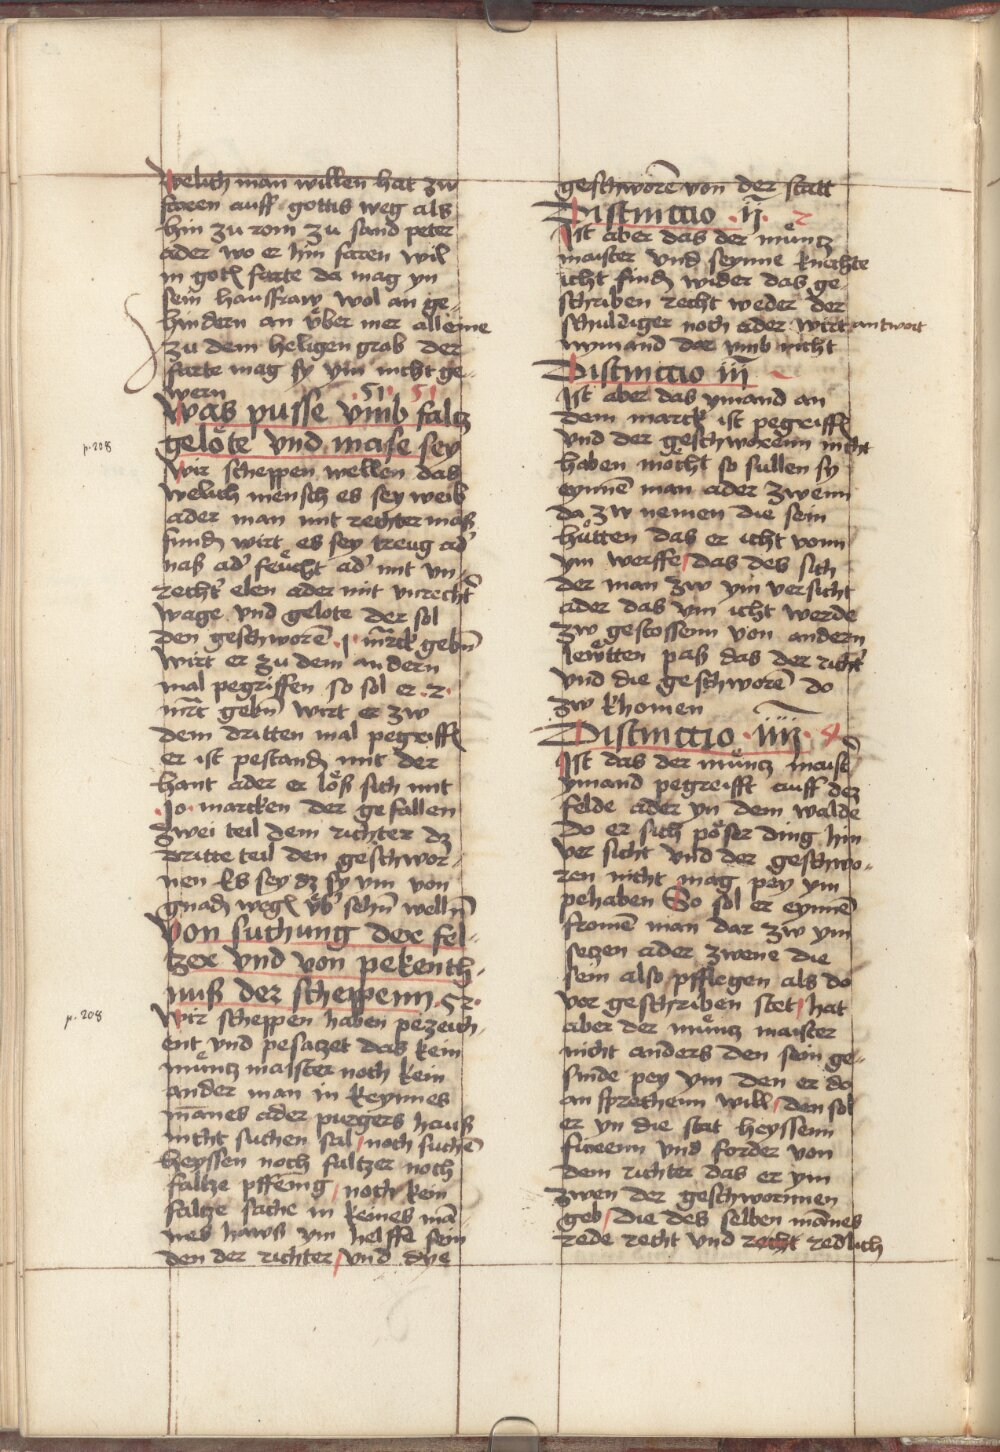 Welich man willen hat zw
foren auff gottis weg als
hin zu rom zu sand peter
ader wo er hin faren wil
in gotꝭ farte da mag yn
sein hausfraw wol an ge-
hindern an vͤber mer alleine
zu dem heligen grab der
farte mag sy ym nicht ge-
wern
Was pusse vmb faltz .51. 51
gelöte vnd mase sey
p. 208
Wir scheppen wellen das
welich mensch es sey weib
ader man mit rechter maß
fundꝭ wirt es sey treug ad'
naß ad' feücht ad' mit vn-
recht' elen ader mit vnrecht'
wage vnd gelote der sol
den geschworē .j. mrck gebn̄
wirt er zu dem andern
mal pegriffen so sol er .2.
mrc gebn̄ wirt er zw
dem dritten mal pegriffꝭ
er ist pestandꝭ mit der
hant ader er löß sich mit
.10. marcken der gefallen
zwei teil dem richter dz
dritte teil den geschwor-
nen Es sey dz sy ym von
gnadꝭ wegꝭ vͤb' sehn̄ welln̄
Von suchung der fel-
tzer vnd von pekenth-
nuß der scheppenn .52.
p. 208
Wir scheppen haben pezeich-
ent vnd pesatzet das kein
müntz maister noch kein
ander man in keynnes
mānes ader purgers hauß
nicht suchen sal / noch suchē
heyssen noch faltzer noch
faltze pffenīg / noch kein
faltze sache in keines mā
nes hawß ym helffe sein
den der richter / vnd dye
geschworē von der statt
Distinctio .ij. 2
Ist aber das der müntz
maister vnd seynne knechte
icht findꝭ wider das ge-
schriben recht weder der
schuldiger noch ader wirt antwort
nymand dor vmb nicht
Distinctio iij
Ist aber das ymand an
dem marck ist pegriffꝭ
vnd der geschworenn nicht
haben möcht so sullen sy
eynnē man ader zwenn
da zw nemen die sein
hütten das er icht vonn
ym werffe / das des sich
der man zw ym versicht
ader das ym icht werde
zw gestossenn von andern
lewtten paß das der richt'
vnd die geschworē do
zw khomen
Distinctio .iiij. 4
Ist das der müntz maist'
ymand pegreifft auff dez
felde ader yn dem walde
do er sich pöser ding hin
ver sicht vnd der geschwo-
ren nicht mag pey ym
pehaben So sol er eynnē
fromē man dar zw ym
setzen ader zwene die
sein also pfflegen als do
vor geschriben stet / hat
aber der müntz maister
nicht anders den sein ge-
sinde pey ym den er do
an sprechenn will / den sol
er yn die stat heyssenn
füeren vnd forder von
dem richter das er ym
zwen der geschwornnen
geb / die des selben mānes
rede recht vnd recht redlich